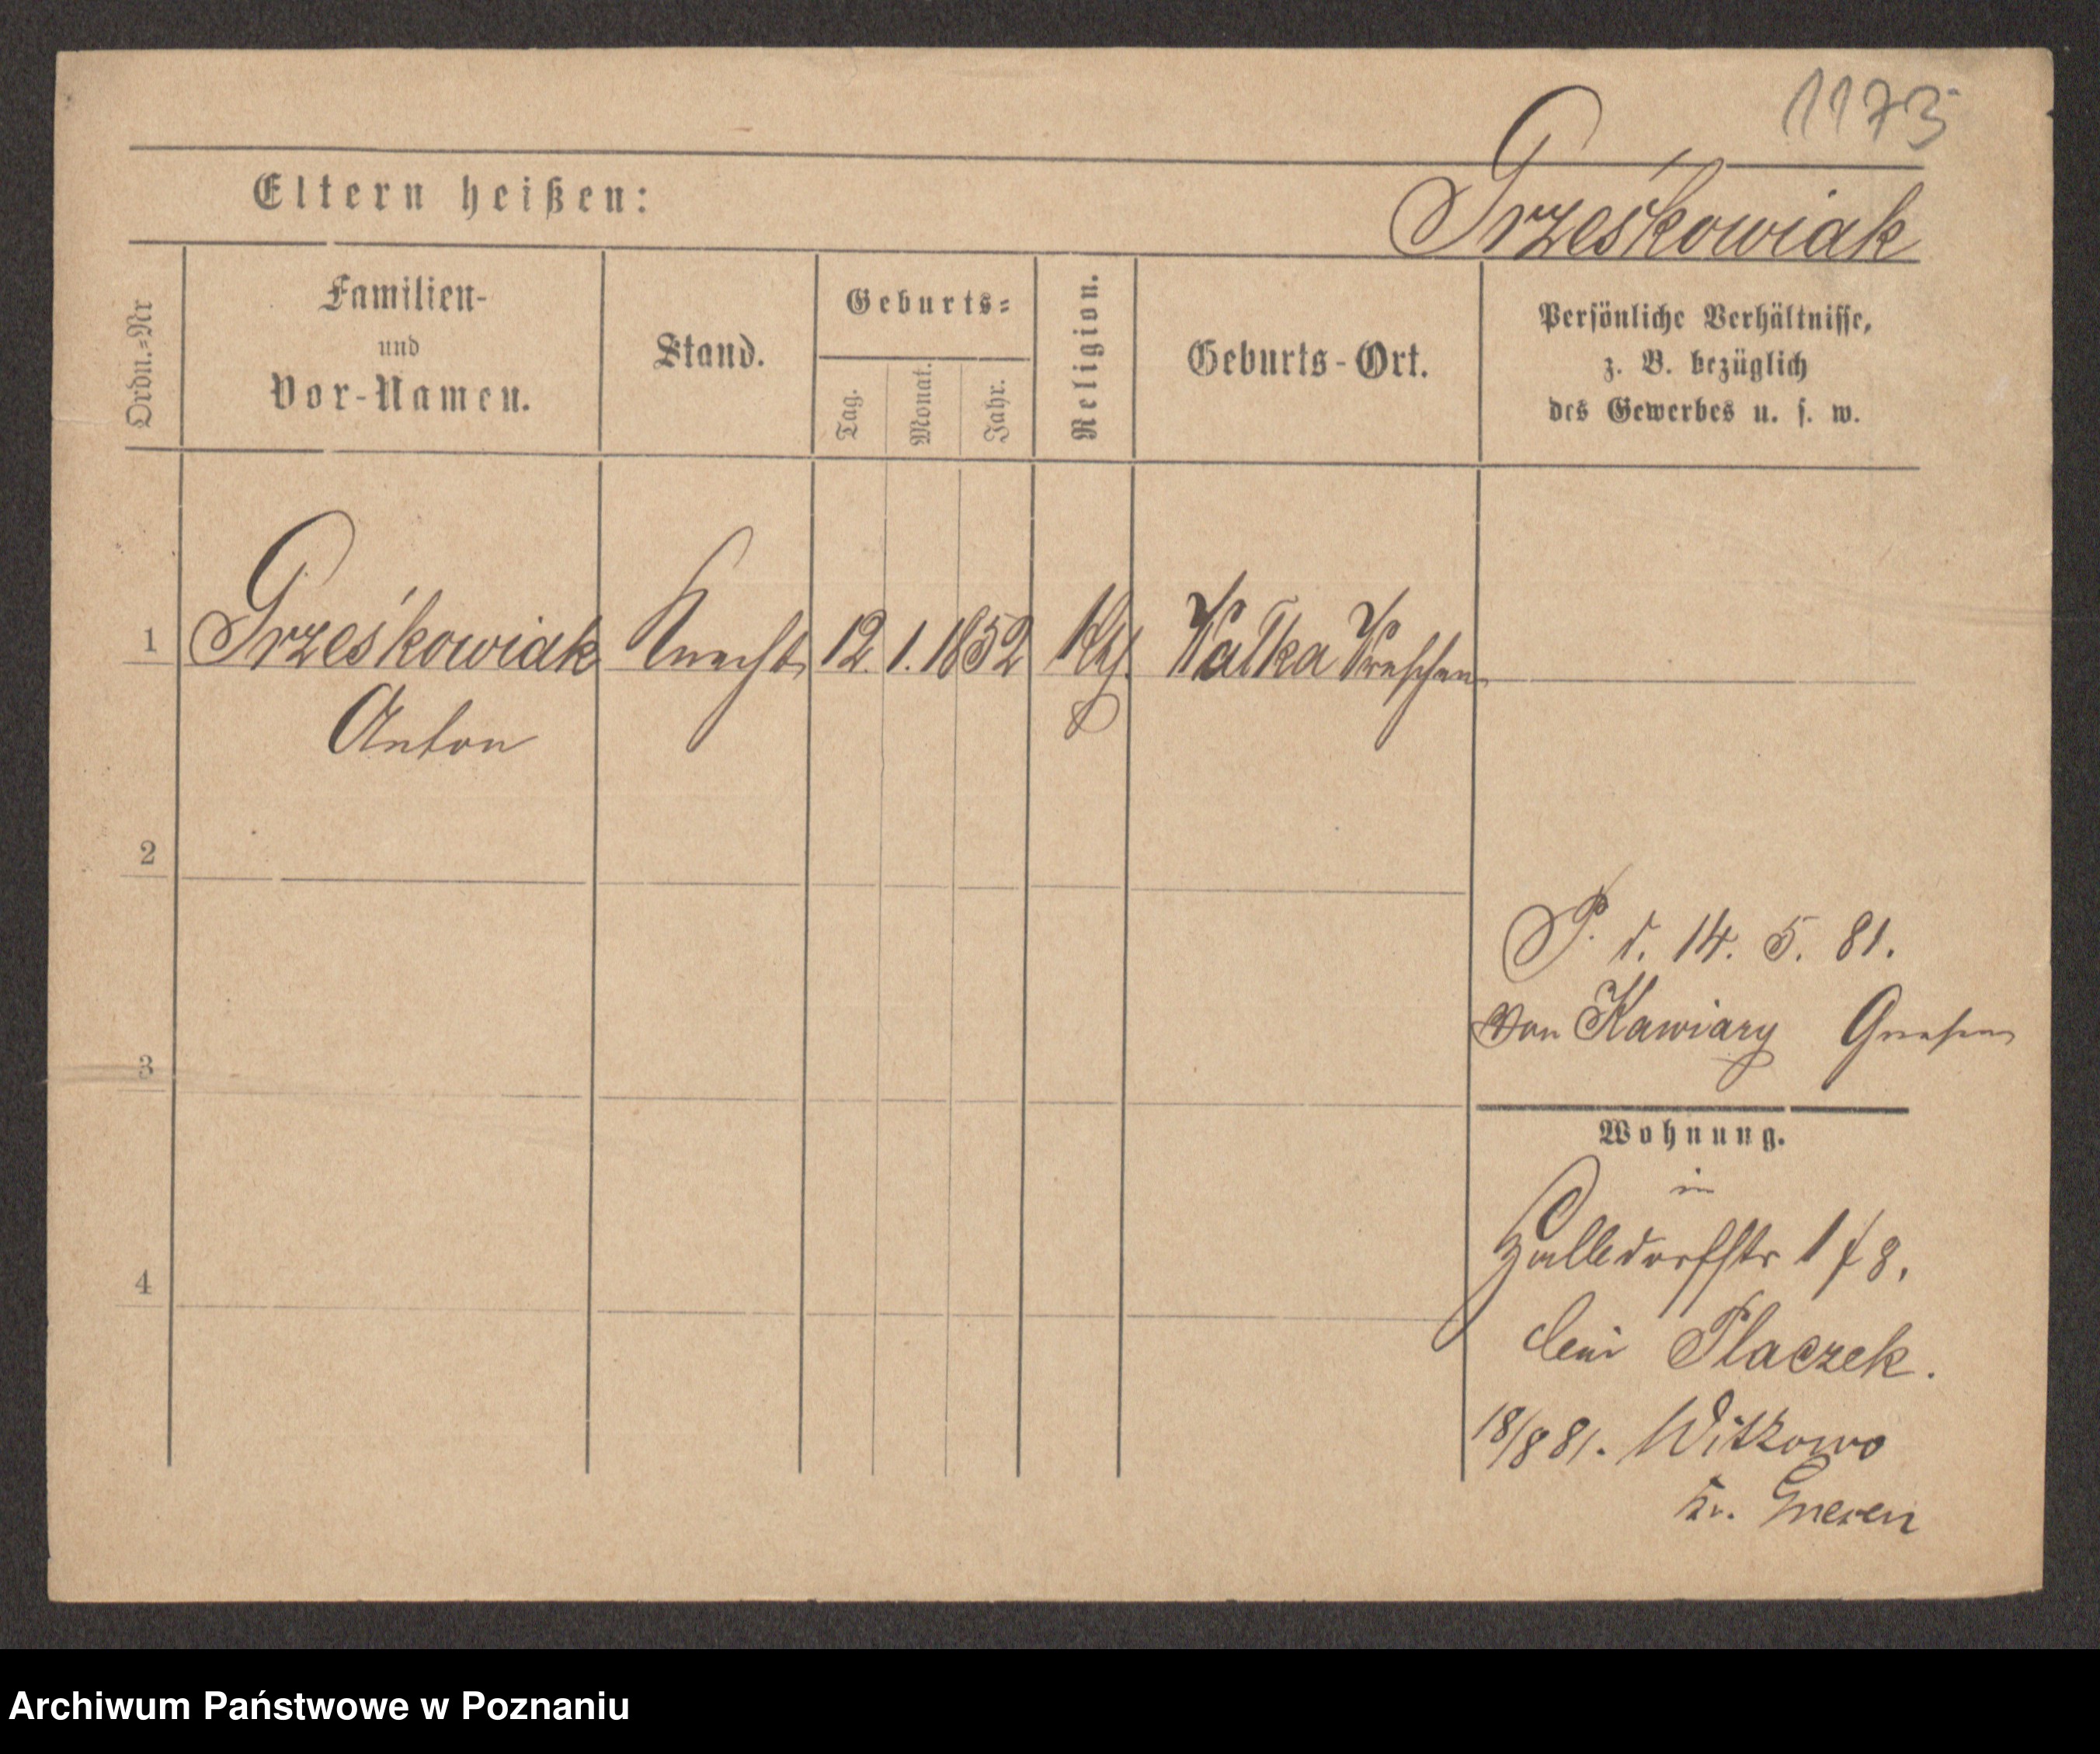 1173
Eltern heißen:
Grześkowiak
Ordn.=Nr
Familien-
und
Vor-Namen.
Stand.
Geburts=
Tag.
Monat.
Jahr.
Religion.
Geburts-Ort.
Persönliche Verhältnisse,
z. B. bezüglich
des Gewerbes u. s. w.
1 Grześkowiak Knecht 12. 1. 1852 Kth. Watka Wreschen
Anton
2
P. d. 14. 5. 81.
von Kawiary Gnesen
3
Wohnung.
in
Halldorfstr 1 f 8.
bei Placzek.
4
18/8 81. Witkowo
Kr. Gnesen
Archiwum Państwowe w Poznaniu